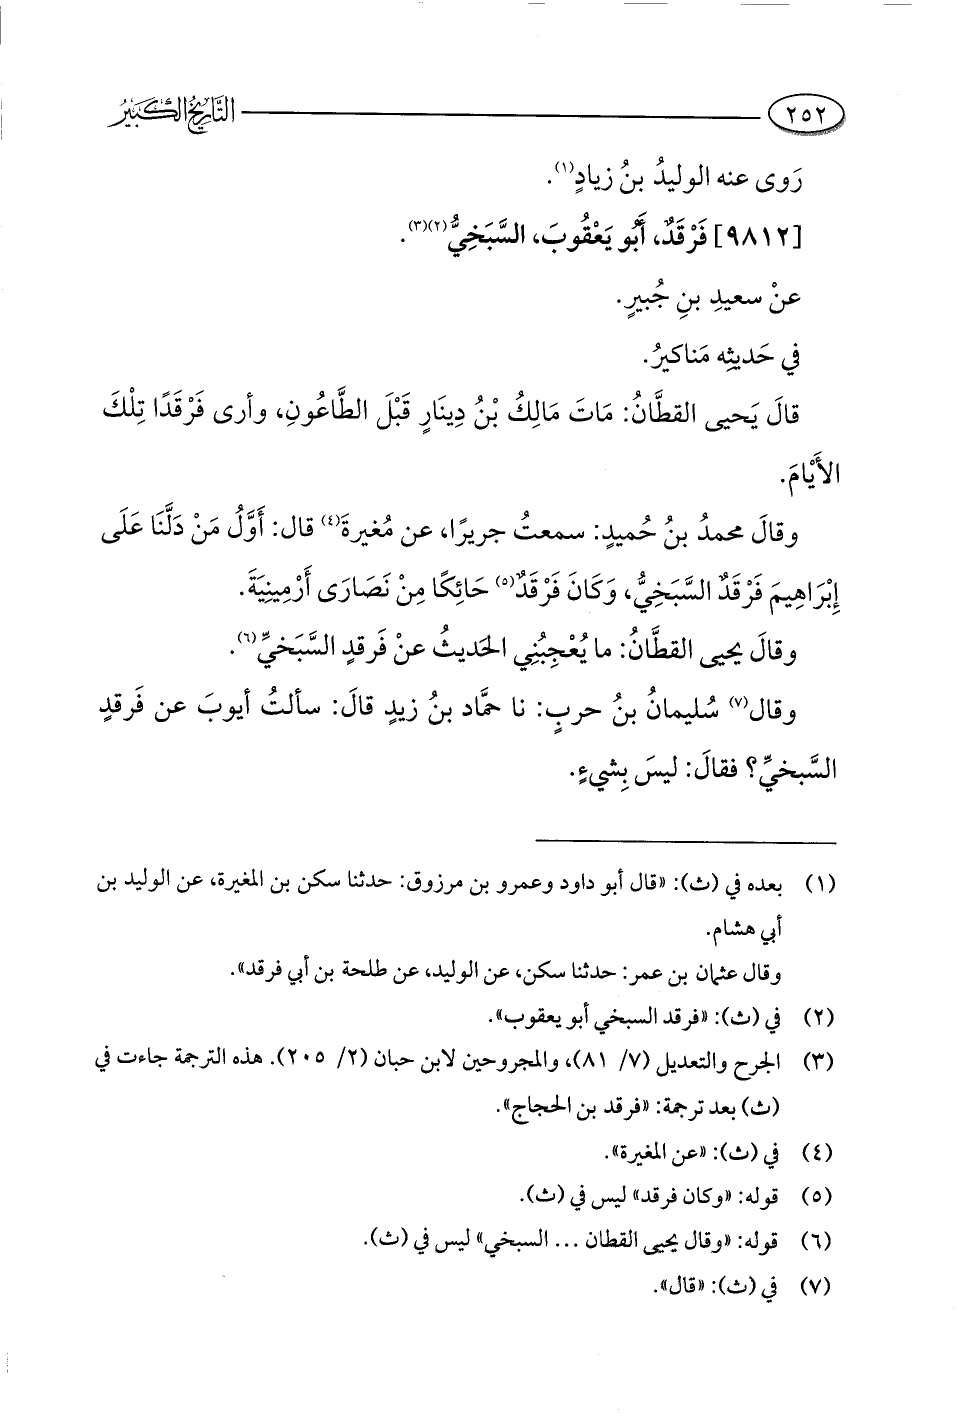 ٢٥٢ التَّارِيخُ الكَبِيرُ
رَوى عنه الوليدُ بنُ زيادٍ(١).
[٩٨١٢] فَرْقَدٌ، أَبُو يَعْقُوبَ، السَّبَخِيُّ(٢)(٣).
عنْ سعيدِ بنِ جُبيرٍ.
في حَديثِه مَناكيرُ.
قالَ يَحيى القطَّانُ: مَاتَ مَالِكُ بْنُ دِينَارٍ قَبْلَ الطَّاعُونِ، وأرى فَرْقَدًا تِلْكَ
الأَيَّامَ.
وقالَ محمدُ بنُ حُميدٍ: سمعتُ جريرًا، عن مُغيرةَ(٤) قال: أَوَّلُ مَنْ دَلَّنَا عَلَى
إِبْرَاهِيمَ فَرْقَدٌ السَّبَخِيُّ، وَكَانَ فَرْقَدٌ(٥) حَائِكًا مِنْ نَصَارَى أَرْمِينِيَةَ.
وقالَ يحيى القطَّانُ: ما يُعْجِبُنِي الحَديثُ عنْ فَرقدٍ السَّبَخيِّ(٦).
وقال(٧) سُليمانُ بنُ حربٍ: نا حمَّاد بنُ زيدٍ قالَ: سألتُ أيوبَ عن فَرقدٍ
السَّبخيِّ؟ فقالَ: ليسَ بِشيءٍ.
(١) بعده في (ث): «قال أبو داود وعمرو بن مرزوق: حدثنا سكن بن المغيرة، عن الوليد بن
أبي هشام.
وقال عثمان بن عمر: حدثنا سكن، عن الوليد، عن طلحة بن أبي فرقد».
(٢) في (ث): «فرقد السبخي أبو يعقوب».
(٣) الجرح والتعديل (٧/ ٨١)، والمجروحين لابن حبان (٢/ ٢٠٥). هذه الترجمة جاءت في
(ث) بعد ترجمة: «فرقد بن الحجاج».
(٤) في (ث): «عن المغيرة».
(٥) قوله: «وكان فرقد» ليس في (ث).
(٦) قوله: «وقال يحيى القطان ... السبخي» ليس في (ث).
(٧) في (ث): «قال».